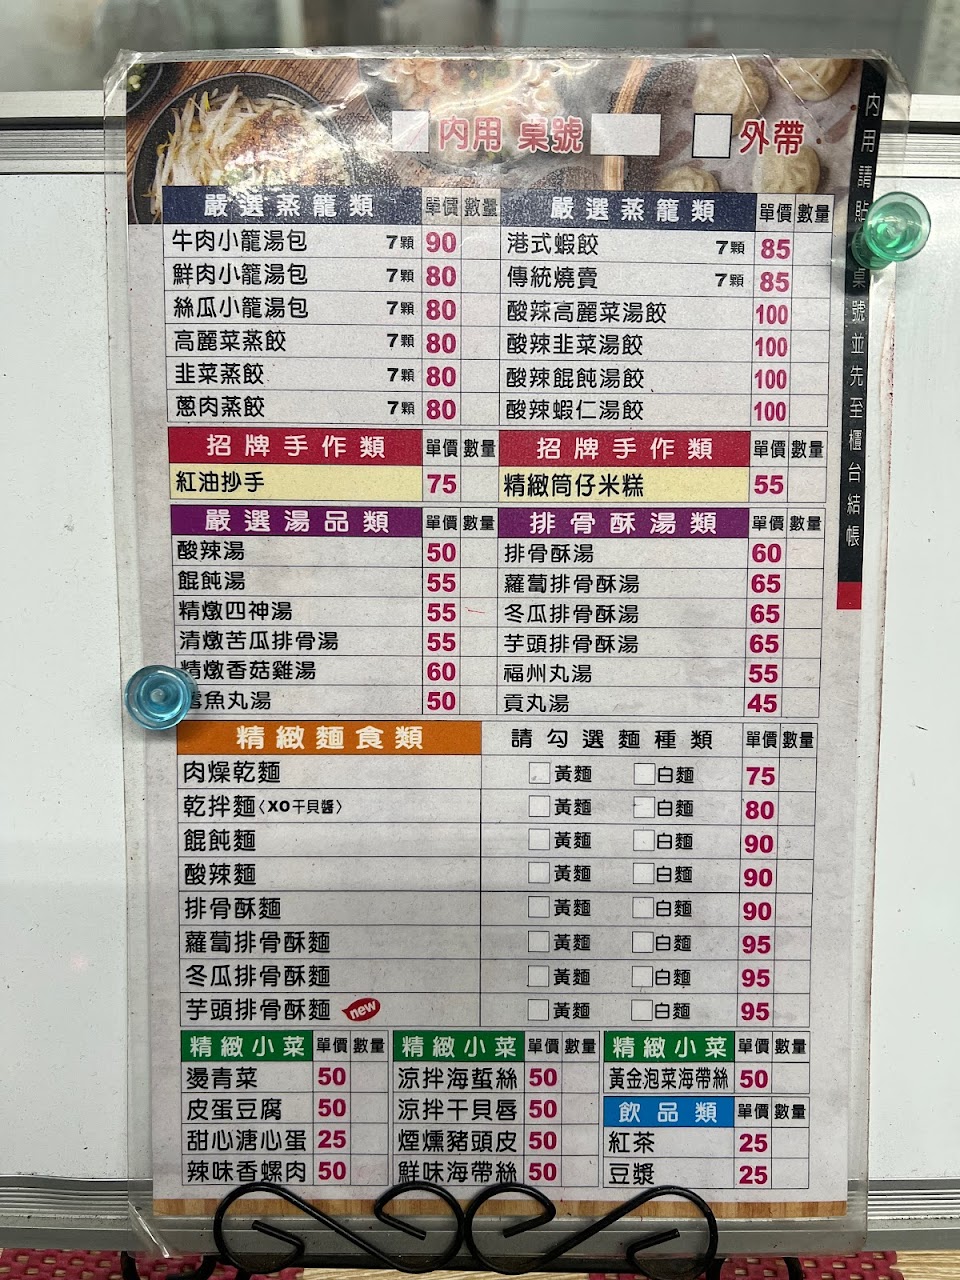 內用 桌號 外帶
內用請貼 桌號並先至櫃台結帳
嚴選蒸籠類 單價 數量 嚴選蒸籠類 單價 數量
牛肉小籠湯包 7顆 90 港式蝦餃 7顆 85
鮮肉小籠湯包 7顆 80 傳統燒賣 7顆 85
絲瓜小籠湯包 7顆 80 酸辣高麗菜湯餃 100
高麗菜蒸餃 7顆 80 酸辣韭菜湯餃 100
韭菜蒸餃 7顆 80 酸辣餛飩湯餃 100
蔥肉蒸餃 7顆 80 酸辣蝦仁湯餃 100
招牌手作類 單價 數量 招牌手作類 單價 數量
紅油抄手 75 精緻筒仔米糕 55
嚴選湯品類 單價 數量 排骨酥湯類 單價 數量
酸辣湯 50 排骨酥湯 60
餛飩湯 55 蘿蔔排骨酥湯 65
精燉四神湯 55 冬瓜排骨酥湯 65
清燉苦瓜排骨湯 55 芋頭排骨酥湯 65
精燉香菇雞湯 60 福州丸湯 55
魚丸湯 50 貢丸湯 45
精緻麵食類 請勾選麵種類 單價 數量
肉燥乾麵 黃麵 白麵 75
乾拌麵〈XO干貝醬〉 黃麵 白麵 80
餛飩麵 黃麵 白麵 90
酸辣麵 黃麵 白麵 90
排骨酥麵 黃麵 白麵 90
蘿蔔排骨酥麵 黃麵 白麵 95
冬瓜排骨酥麵 黃麵 白麵 95
芋頭排骨酥麵 new 黃麵 白麵 95
精緻小菜 單價 數量 精緻小菜 單價 數量 精緻小菜 單價 數量
燙青菜 50 涼拌海蜇絲 50 黃金泡菜海帶絲 50
皮蛋豆腐 50 涼拌干貝唇 50 飲品類 單價 數量
甜心溏心蛋 25 煙燻豬頭皮 50 紅茶 25
辣味香螺肉 50 鮮味海帶絲 50 豆漿 25